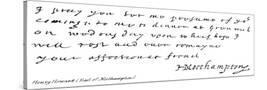 I pray you lett me presume of yr
coming to me to dinner at
on wednesday upon which hope I
will rest and ever remayne
your affectionat frend
HNorthampton
Henry Howard (Earl of Northampton)